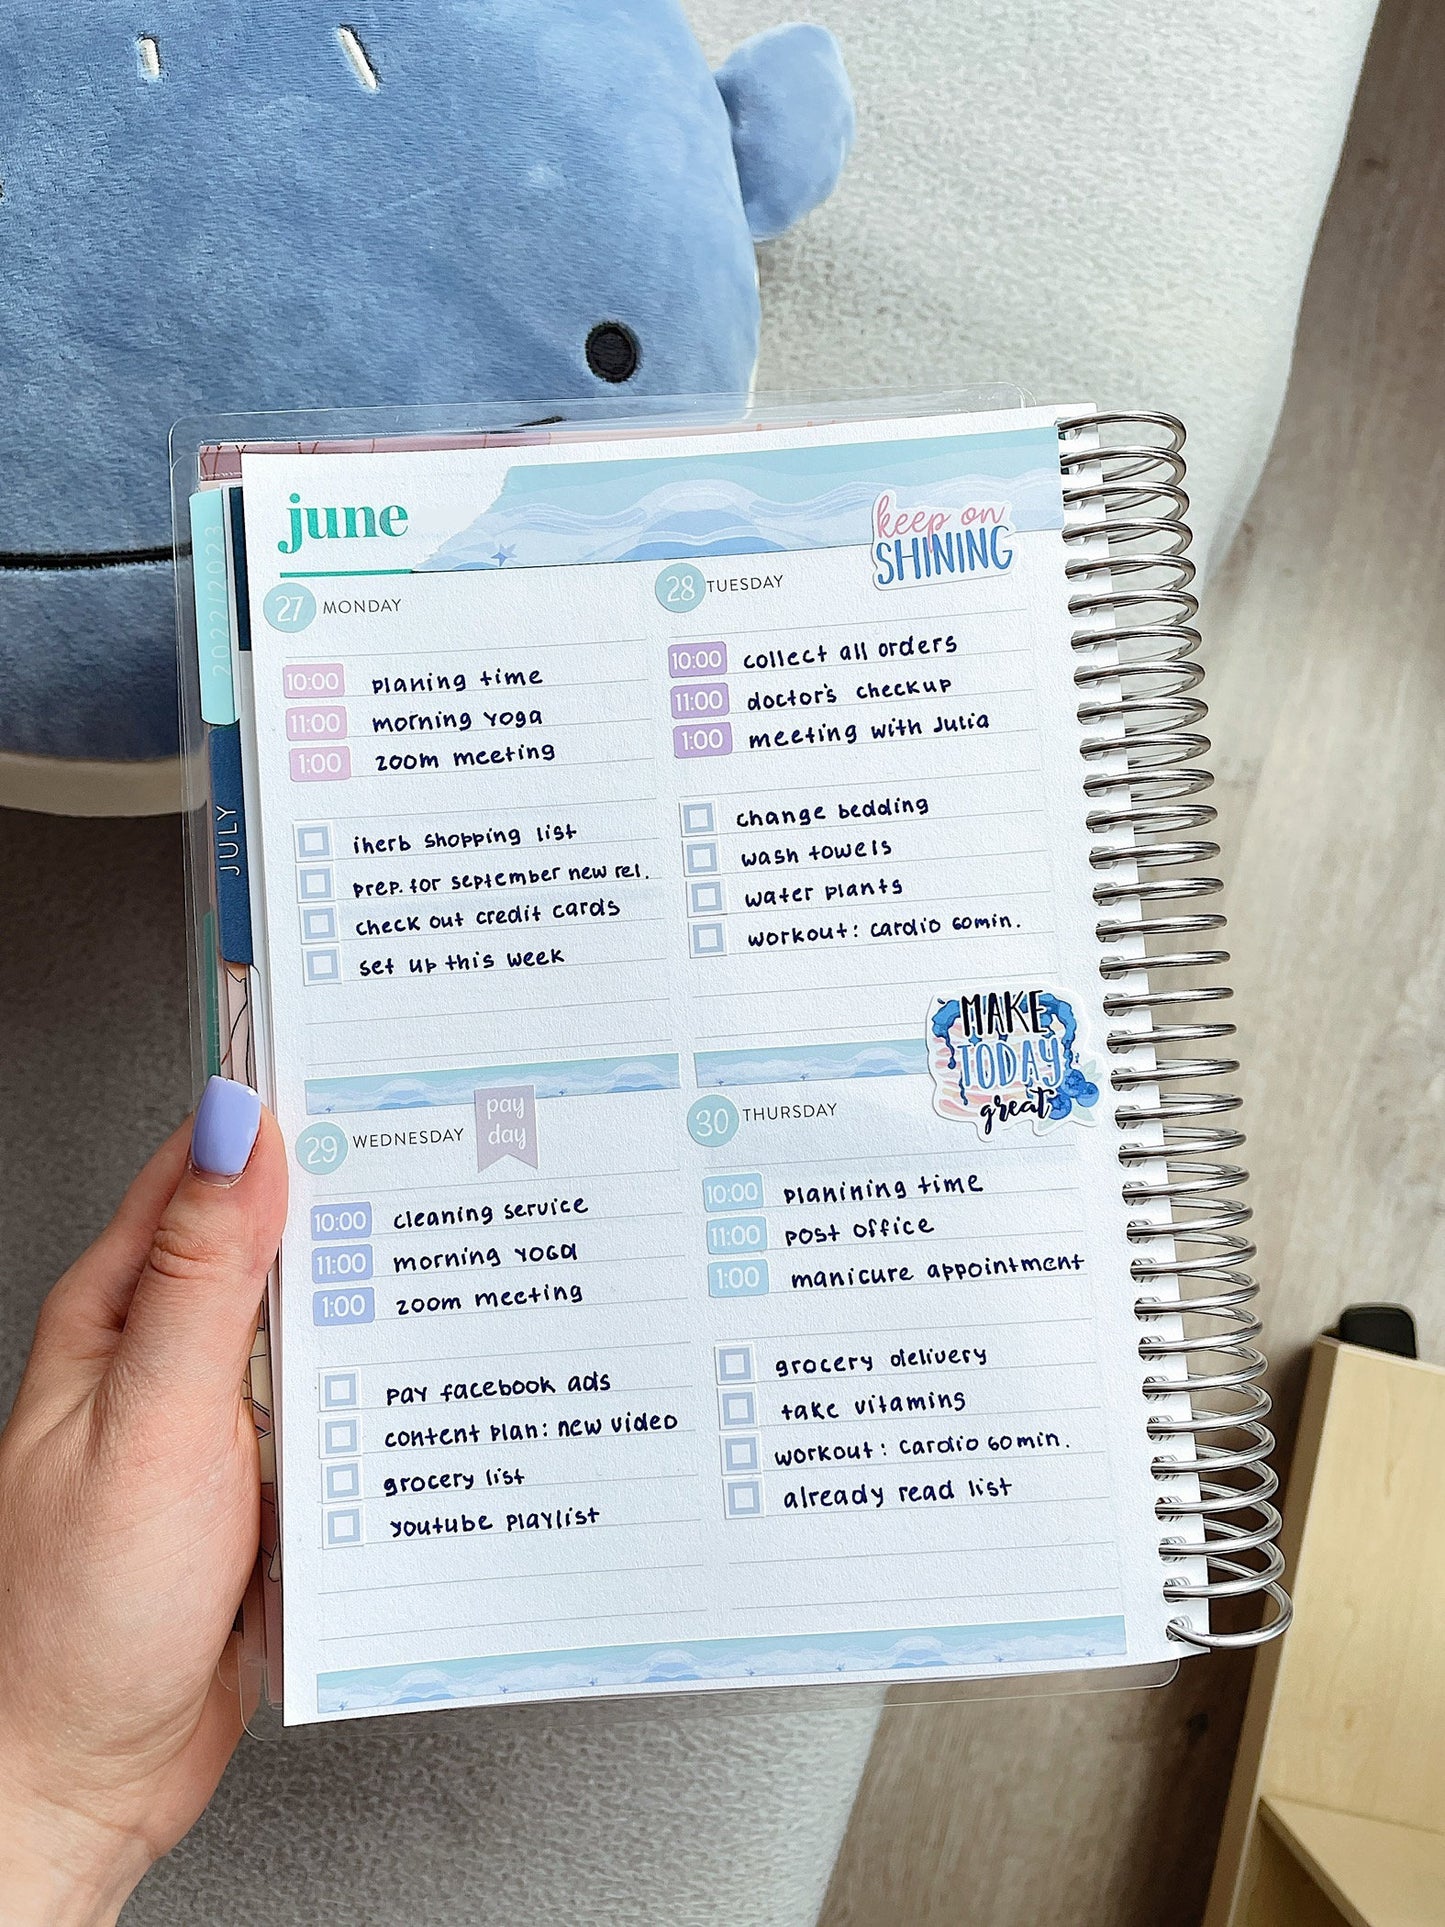 june
keep on
SHINING
2022|2023
JULY
27 MONDAY
10:00 planing time
11:00 morning yoga
1:00 zoom meeting
iherb shopping list
prep. for september new rel.
check out credit cards
set up this week
28 TUESDAY
10:00 collect all orders
11:00 doctor's checkup
1:00 meeting with Julia
change bedding
wash towels
water plants
workout: cardio 60min.
MAKE
TODAY
great
29 WEDNESDAY
pay
day
10:00 cleaning service
11:00 morning YOGa
1:00 zoom meeting
pay facebook ads
content plan: new video
grocery list
youtube playlist
30 THURSDAY
10:00 planining time
11:00 post office
1:00 manicure appointment
grocery delivery
take vitamins
workout: cardio 60min.
already read list